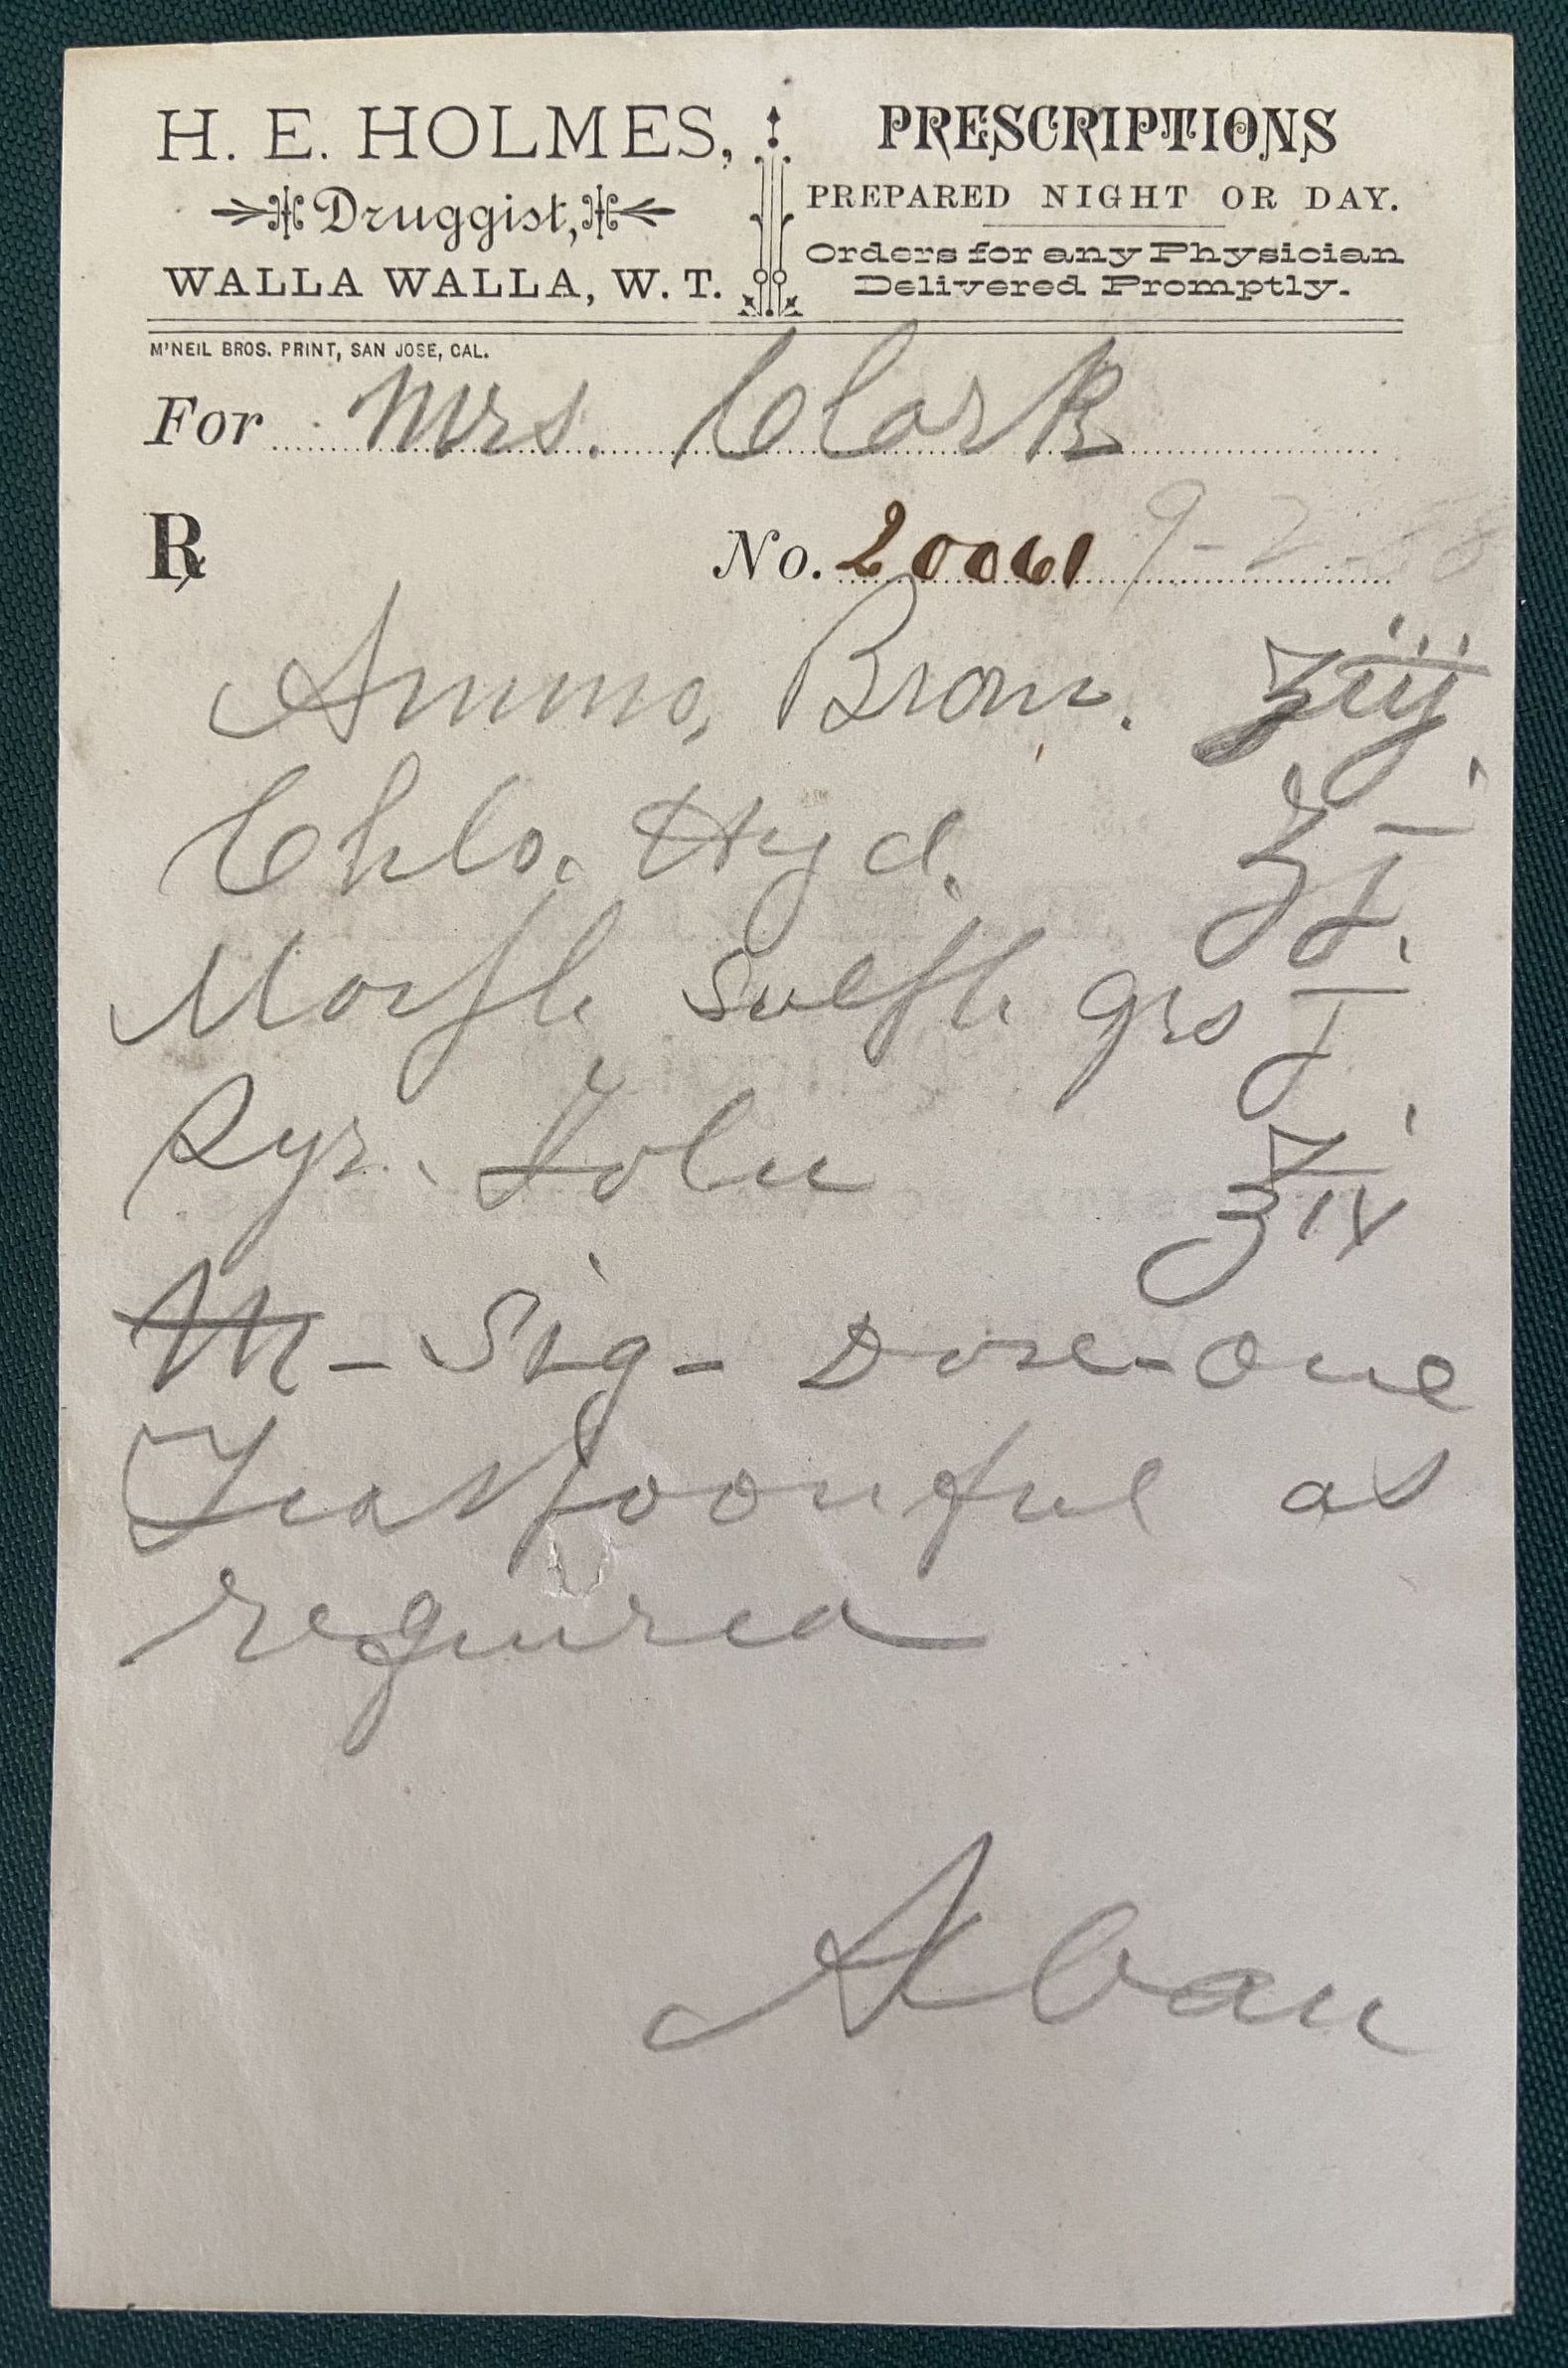 H. E. HOLMES,
Druggist,
WALLA WALLA, W. T.
PRESCRIPTIONS
PREPARED NIGHT OR DAY.
Orders for any Physician
Delivered Promptly.
M'NEIL BROS. PRINT, SAN JOSE, CAL.
For Mrs. Clark
℞ No. 20061 9-2-88
Ammo, Brom. ʒiij
Chlo. Hyd. ʒj
Morph Sulph grs j
Syr. Tolu ℥iv
M - Sig - Dose - One
Teaspoonful as
required